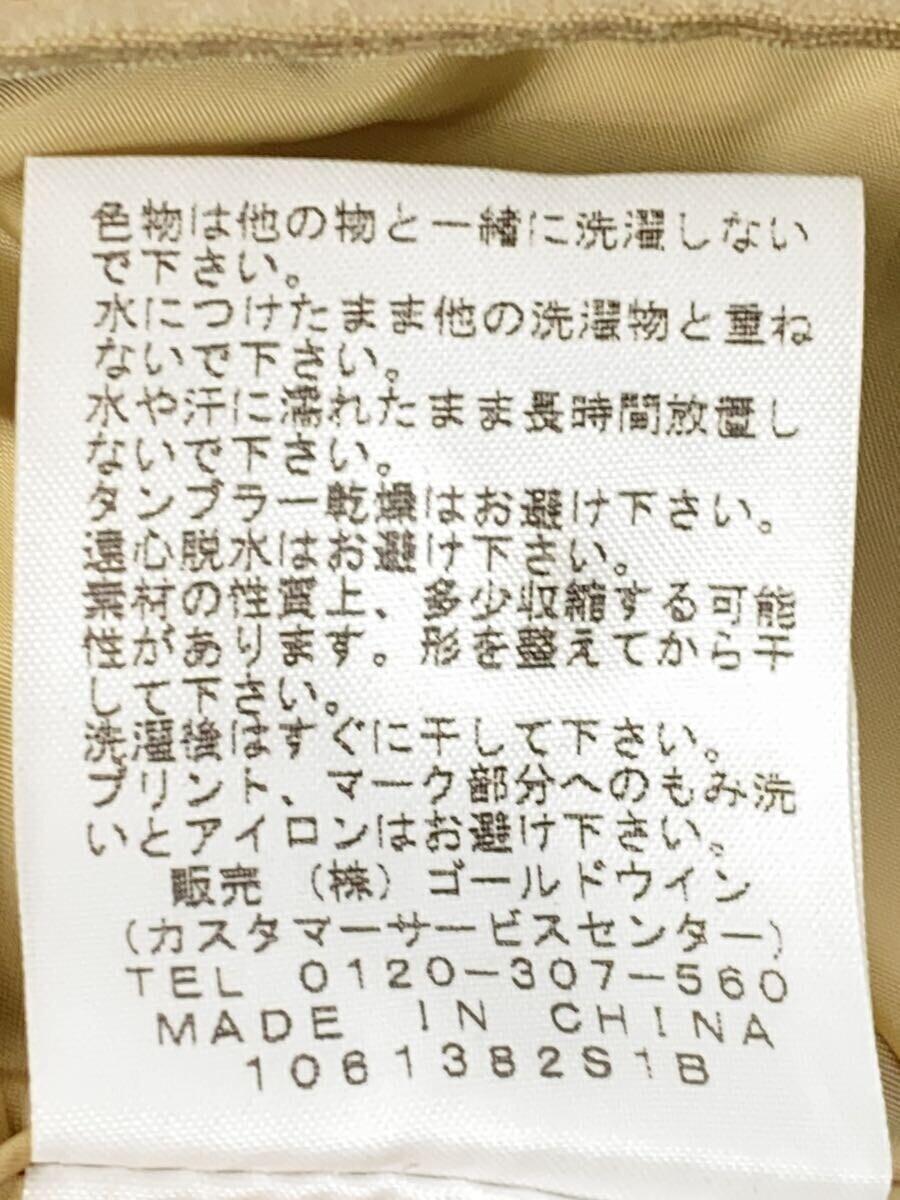 色物は他の物と一緒に洗濯しない
で下さい。
水につけたまま他の洗濯物と重ね
ないで下さい。
水や汗に濡れたまま長時間放置し
ないで下さい。
タンブラー乾燥はお避け下さい。
遠心脱水はお避け下さい。
素材の性質上、多少収縮する可能
性があります。形を整えてから干
して下さい。
洗濯後はすぐに干して下さい。
プリント、マーク部分へのもみ洗
いとアイロンはお避け下さい。
販売 (株) ゴールドウイン
(カスタマーサービスセンター)
TEL 0120-307-560
MADE IN CHINA
1061382S1B